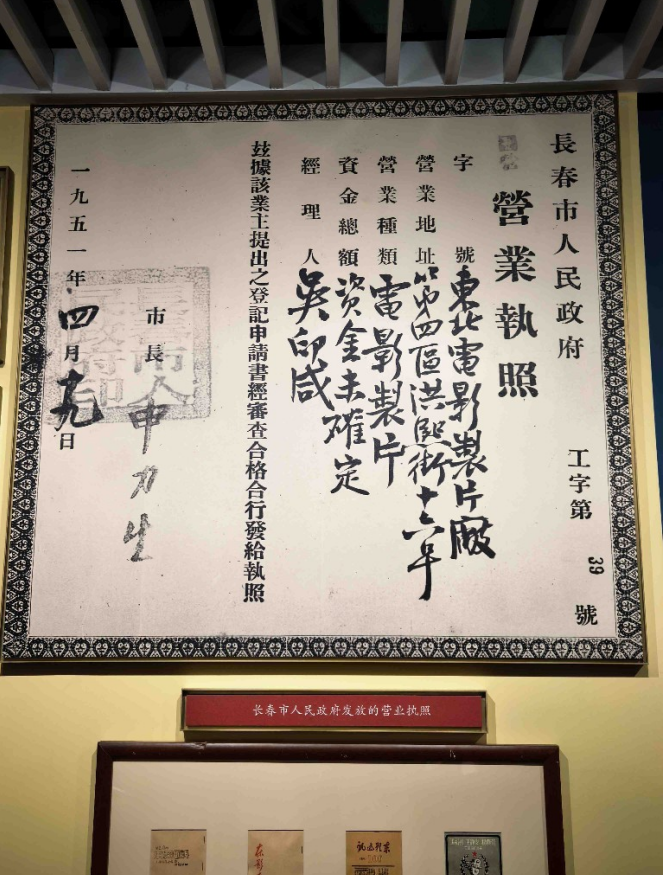 長春市人民政府
工字第39號
營業執照
字號 東北電影製片廠
營業地址 第四區洪熙街十六
營業種類 電影製片
資金總額 資金未確定
經理人 吳印咸
玆據該業主提出之登記申請書經審查合格合行發給執照
市長
一九五一年四月 日
长春市人民政府发放的营业执照